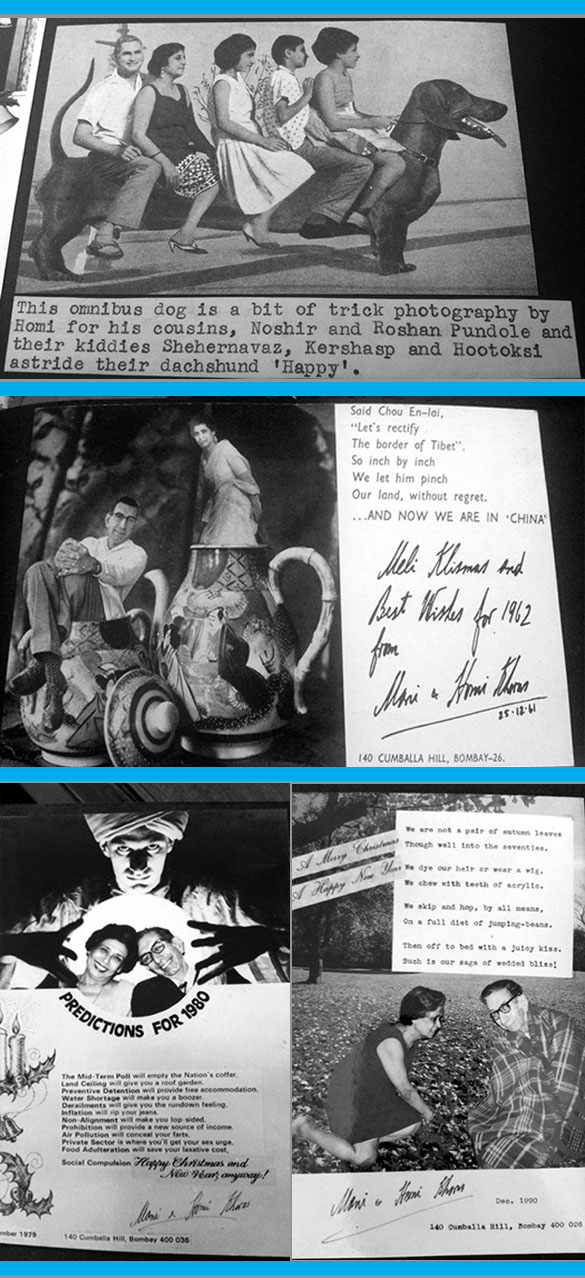 This omnibus dog is a bit of trick photography by
Homi for his cousins, Noshir and Roshan Pundole and
their kiddies Shehernavaz, Kershasp and Hootoksi
astride their dachshund 'Happy'.
Said Chou En-lai,
"Let's rectify
The border of Tibet".
So inch by inch
We let him pinch
Our land, without regret.
...AND NOW WE ARE IN 'CHINA'
Meli Klismas and
Best Wishes for 1962
from
Mani & Homi Khoras
25-12-61
140 CUMBALLA HILL, BOMBAY-26.
PREDICTIONS FOR 1980
The Mid-Term Poll will empty the Nation's coffer.
Land Ceiling will give you a roof garden.
Preventive Detention will provide free accommodation.
Water Shortage will make you a boozer.
Derailments will give you the rundown feeling.
Inflation will rip your jeans.
Non-Alignment will make you lop-sided.
Prohibition will provide a new source of income.
Air Pollution will conceal your farts.
Private Sector is where you'll get your sex urge.
Food Adulteration will save your laxative cost,
Social Compulsion Happy Christmas and
New Year, anyway!
Mani & Homi Khoras
mber 1979
140 Cumballa Hill, Bombay 400 036
A Merry Christmas
A Happy New Year
We are not a pair of autumn leaves
Though well into the seventies.
We dye our hair or wear a wig,
We chew with teeth of acrylic.
We skip and hop, by all means,
On a full diet of jumping-beans.
Then off to bed with a juicy kiss.
Such is our saga of wedded bliss!
Mani & Homi Khoras
Dec. 1990
140 Cumballa Hill, Bombay 400 026